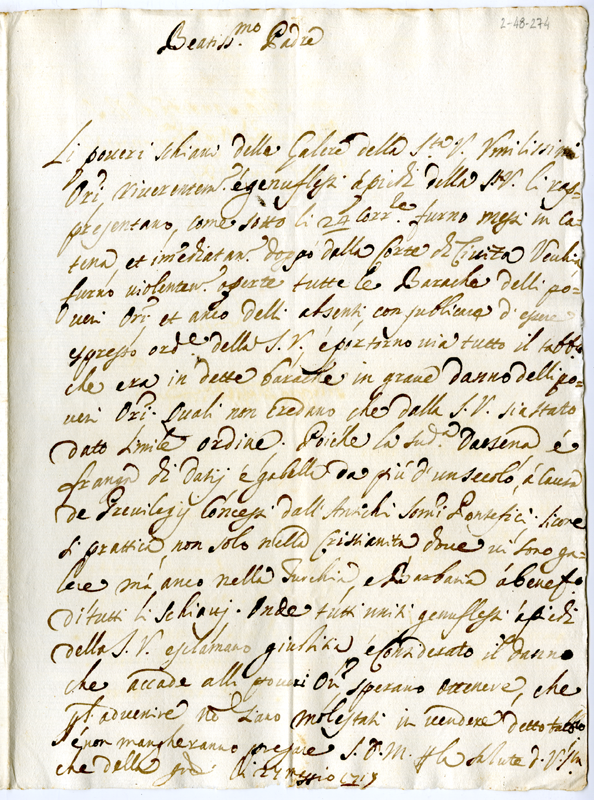 2-48-274
Beatiss.mo Padre
Li poveri schiavi delle Galere della S.tà V. Umilissimi
Ori, riverentem.e e genuflessi a piedi della S.V. li rap=
presentano, come sotto li 24 Corr.te furno messi in ca=
tena et imediatam.e doppo dalla Corte di Civita Vechia
furno violentem.e aperte tutte le Barache delli po=
veri Ori et anco delli absenti con publicare d'essere
espresso ord.e della S. V. e portorno via tutto il tabbo
che era in dette barache in grave danno delli po=
veri Ori. Quali non Credano che dalla S. V. sia stato
dato simile ordine. Poiche la sud.a Darsena è
franca di Datij e gabelle da più d'un secolo, à Causa
de Previlegij Concessi dall'Antichi Somi Pontefici. sicome
si prattica, non solo nella Cristianita dove vi sono ga=
lere mà anco nella Turchia, e Barbaria à benefo
di tutti li schiavj. Onde tutti uniti genuflessi à piedi
della S. V. esclamano giustitia e Considerato il danno
che accade alli poveri Ori sperano ottenere, che
p l'advenire no siano molestati in vendere detto tabbo
e non mancheranno pregare S. D. M. p la salute d. V. Sta
che della gra. Li 27 maggio 1715